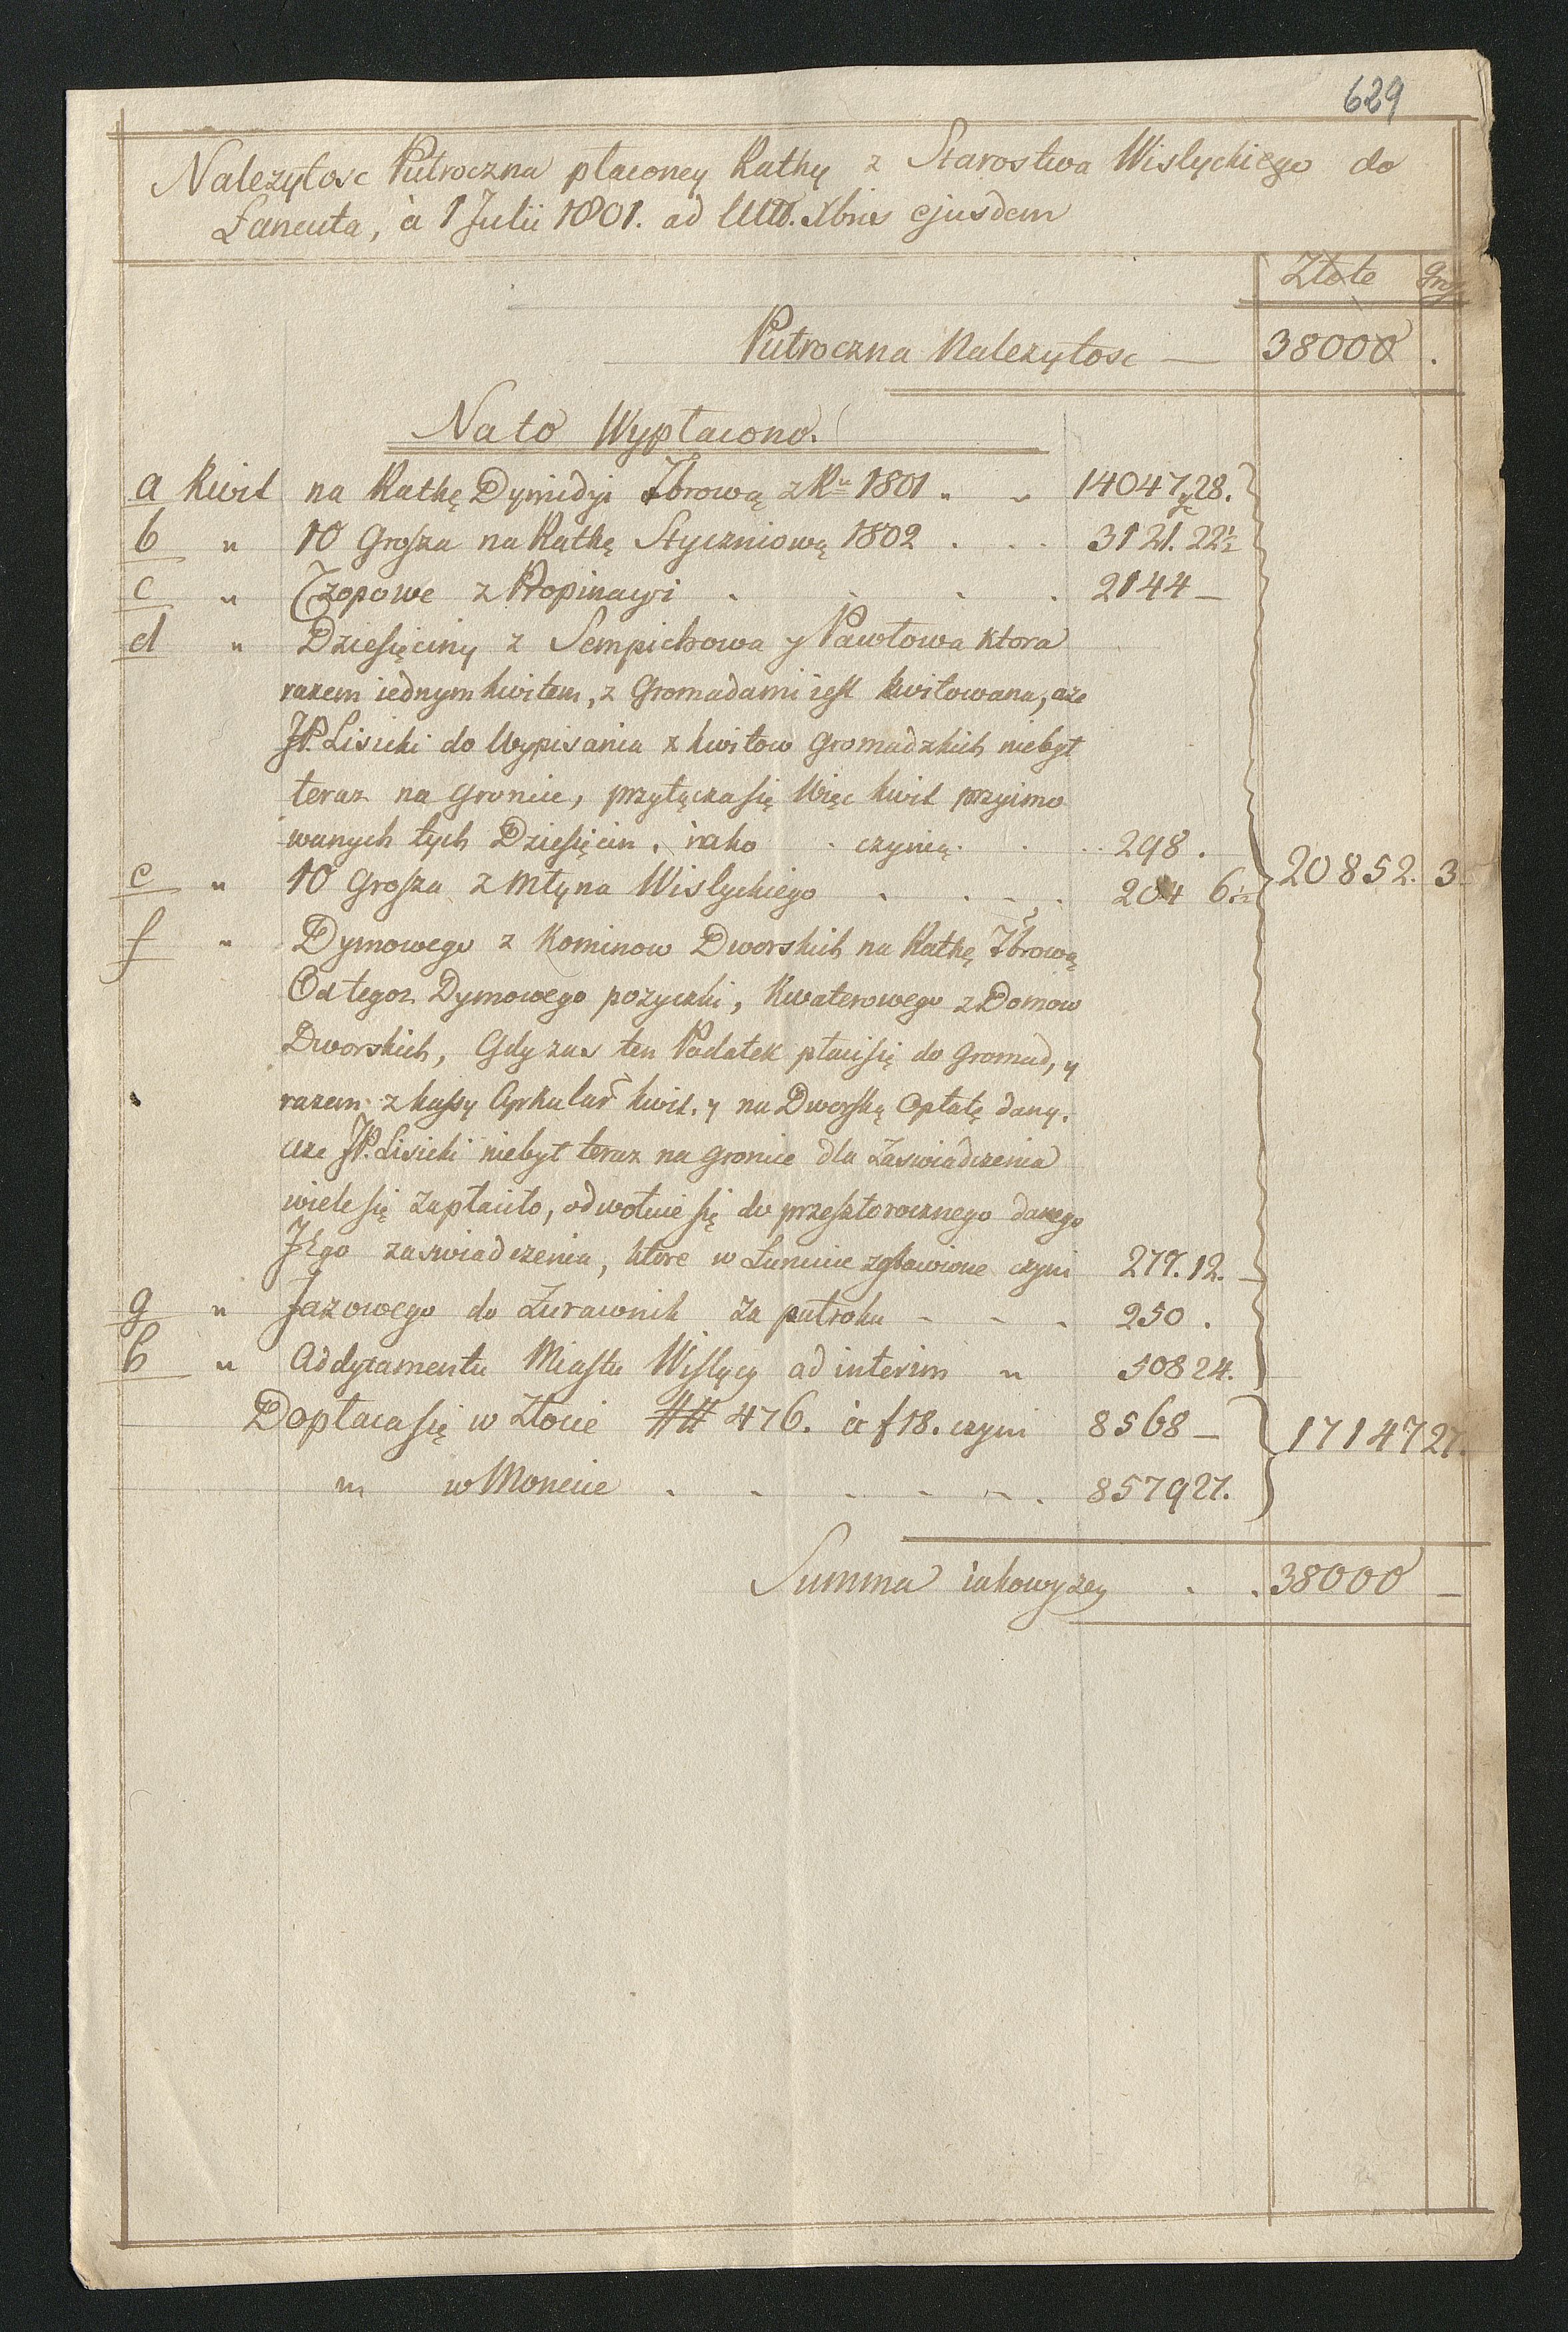 629
Nalezytosc Pułroczna płaconey Rathy z Starostwa Wislyckiego do
Łancuta, à 1 Julii 1801. ad Ultt. Xbris ejusdem
Złote Gro
Pułroczna Nalezytosc — 38000 .
Na to Wypłacono.
a Kwit na Rathę Dymidyi 7brową z Ru 1801 „ „ 14047, 28.
b „ 10 Grosza na Rathę Styczniową 1802 . . . 3121. 22½
c „ Czopowe z Propinacyi . . . . 2144 —
d „ Dziesięciny z Sempichowa y Pawłowa ktora
razem iednym kwitem, z Gromadami iest kwitowana, aże
JP. Lisicki do Wypisania z kwitow gromadzkich niebył
teraz na gronice, przyłącza się Więc kwit przyimo
wanych tych Dziesięcin, iako . czynią . . . 298 .
e „ 10 Grosza z Młyna Wislyckiego . . . . . 204 6½ 20852. 3
f „ Dymowego z Kominow Dworskich na Rathę 7brową
Od tegoz Dymowego pozyczki, Kwaterowego z Domow
Dworskich, Gdy zas ten Podatek płaci się do Gromad, y
razem z kassy Cyrkular kwit. y na Dworską Opłatę dany.
aze JP. Lisicki niebył teraz na gronice dla zaswiadczenia
wiele się zapłaciło, odwołuie się do przeszłorocznego danego
Jego zaswiadczenia, ktore w Łancucie zostawione czyni 279. 12. —
g „ Jazowego do Zurawnik za pułroku - - - 250 .
h „ Addytamentu Miasta Wislycy ad interim „ 508 24.
Dopłaca się w złocie ## 476. à f 18. czyni 8568 — 17147 27.
„ w Monecie . . . . . . 8579 27.
Summa iakowyzey . . 38000 —